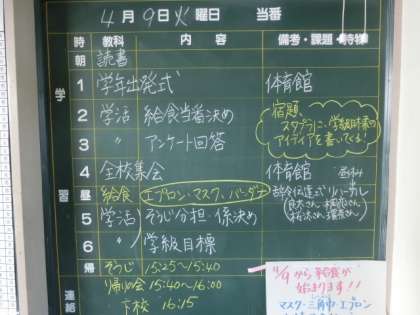 4月9日火曜日 当番
時 教科 内容 備考・課題・持物
朝 読書
1 学年出発式 体育館
学 2 学活 給食当番決め
宿題、
スタプラに、学級目標の
アイディアを書いてくる!
3 〃 アンケート回答
4 全校集会 体育館 昼休み
習 昼 給食 エプロン・マスク・バンダナ
辞令伝達式リハーサル
5 学活 そうじ分担・係決め
6 〃 学級目標
帰 そうじ 15:25〜15:40
連絡 帰りの会 15:40〜16:00
下校 16:15
4/9から給食が
始まります!!
マスク・三角巾・エプロン